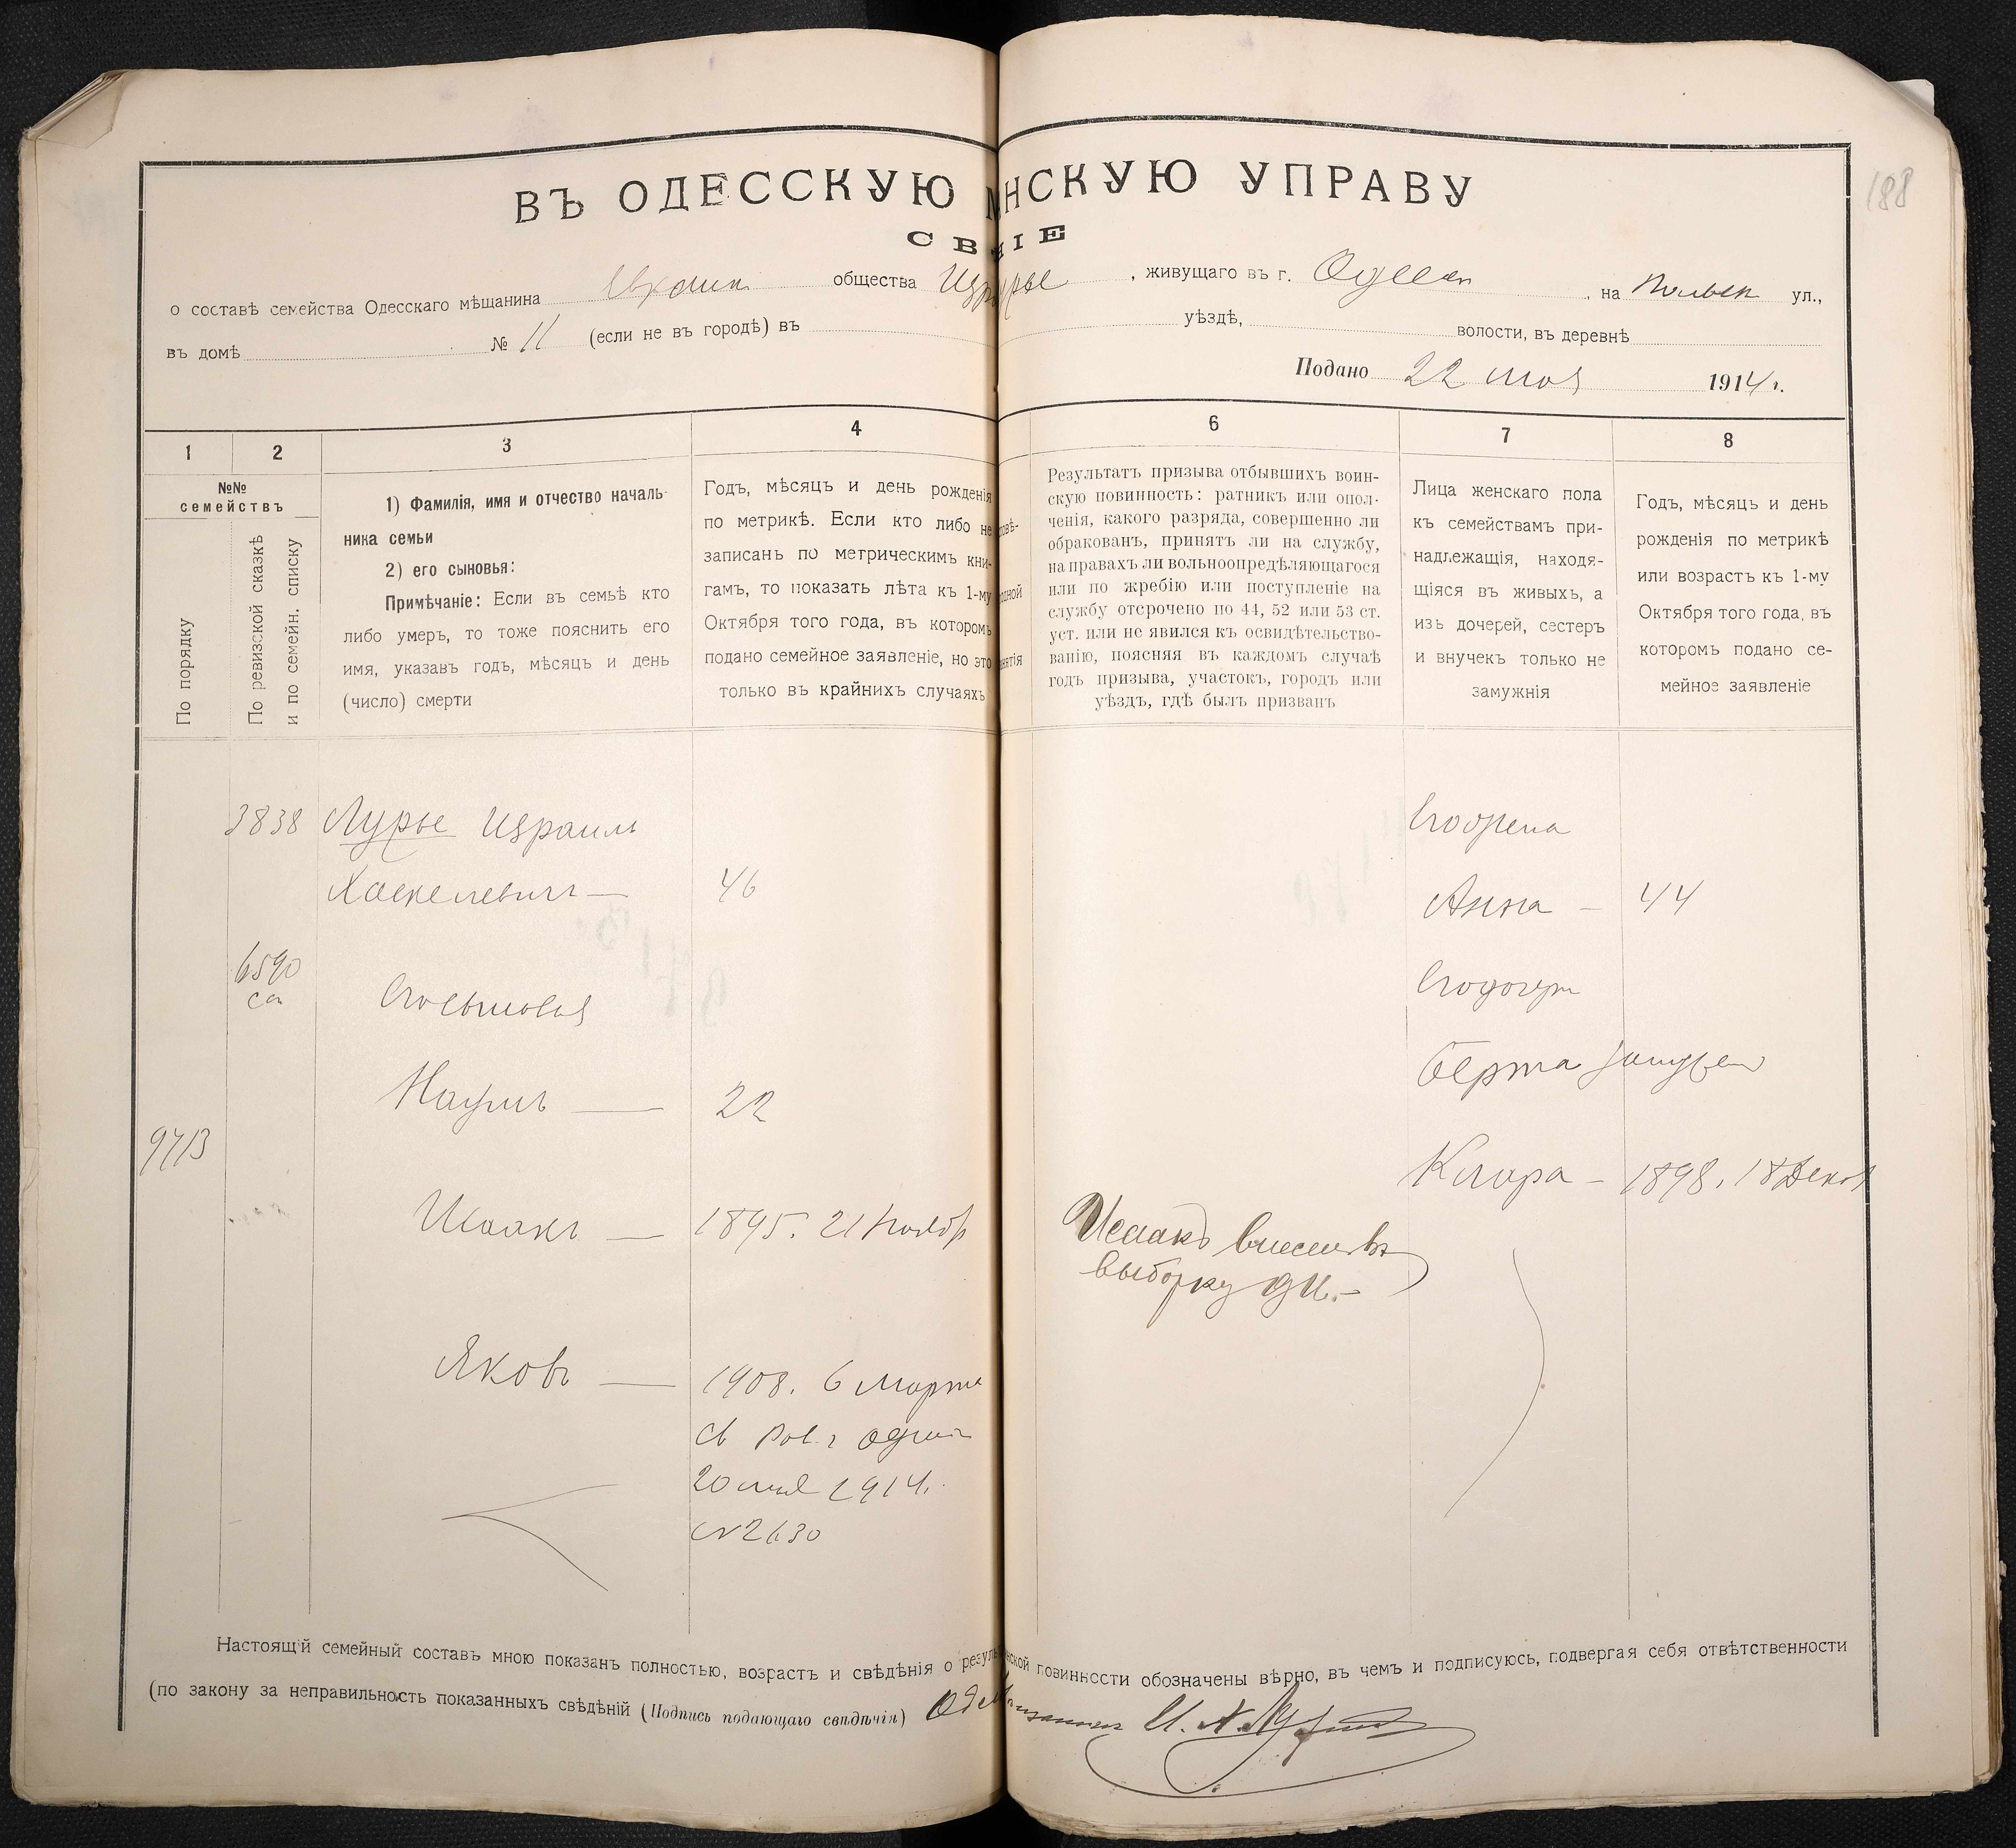 188
ВЪ ОДЕССКУЮ НСКУЮ УПРАВУ
СВ НІЕ
о составѣ семейства Одесскаго мѣщанина общества , живущаго въ г. Одесса , на ул.,
въ домѣ № 11 (если не въ городѣ) въ уѣздѣ, волости, въ деревнѣ
Подано 22 1914 г.
1 2 3 4 6 7 8
№№
семействъ
По порядку
По ревизской сказкѣ
и по семейн. списку
1) Фамилія, имя и отчество началь-
ника семьи
2) его сыновья:
Примѣчаніе: Если въ семьѣ кто
либо умеръ, то тоже пояснить его
имя, указавъ годъ, мѣсяцъ и день
(число) смерти
Годъ, мѣсяцъ и день рожденія
по метрикѣ. Если кто либо не
записанъ по метрическимъ кни-
гамъ, то показать лѣта къ 1-му
Октября того года, въ которомъ
подано семейное заявленіе, но это
только въ крайнихъ случаяхъ
Результатъ призыва отбывшихъ воин-
скую повинность: ратникъ или опол-
ченія, какого разряда, совершенно ли
обракованъ, принятъ ли на службу,
на правахъ ли вольноопредѣляющагося
или по жребію или поступленіе на
службу отсрочено по 44, 52 или 53 ст.
уст. или не явился къ освидѣтельство-
ванію, поясняя въ каждомъ случаѣ
годъ призыва, участокъ, городъ или
уѣздъ, гдѣ былъ призванъ
Лица женскаго пола
къ семействамъ при-
надлежащія, находя-
щіяся въ живыхъ, а
изъ дочерей, сестеръ
и внучекъ только не
замужнія
Годъ, мѣсяцъ и день
рожденія по метрикѣ
или возрастъ къ 1-му
Октября того года, въ
которомъ подано се-
мейное заявленіе
3838 Лурье Израиль
Хаскелевичъ — 46
Анна — 44
6590
Его сыновья
Его дочери
Наумъ — 22
Берта
9713
Клара — 1898. 18 Декаб
Исаакъ — 1895. 21 Ноябр
Исаакъ внесенъ въ
выборку
Яковъ — 1908. 6 Марта
св
20 мая 1914.
№ 2630
Настоящій семейный составъ мною показанъ полностью, возрастъ и свѣдѣнія о резуль нской повинности обозначены вѣрно, въ чемъ и подписуюсь, подвергая себя отвѣтственности
(по закону за неправильность показанныхъ свѣдѣній (Подпись подающаго свѣдѣнія) И. Х. Лурье